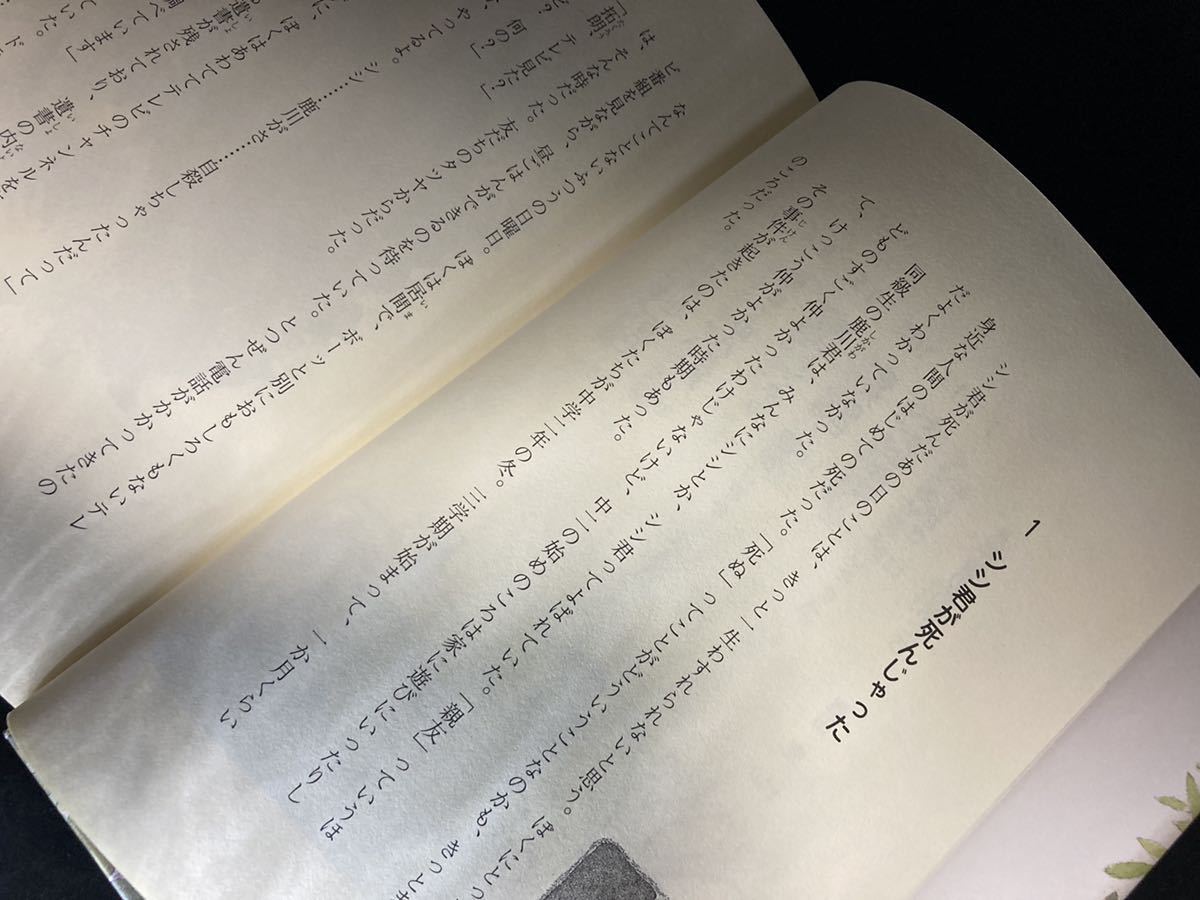 1 シシ君が死んじゃった
シシ君が死んだあの日のことは、きっと一生わすれられないと思う。ぼくにとっ
身近な人間のはじめての死だった。「死ぬ」ってことがどういうことなのかも、きっとま
だよくわかっていなかった。
同級生の鹿川君は、みんなにシシとか、シシ君ってよばれていた。「親友」っていうほ
どものすごく仲がよかったわけじゃないけど、中二の始めのころは家に遊びにいったりし
て、けっこう仲よかった時期もあった。
その事件が起きたのは、ぼくたちが中学二年の冬。三学期が始まって、一か月くらい
のころだった。
なんてことないふつうの日曜日。ぼくは居間で、ボーッと別におもしろくもないテレ
ビ番組を見ながら、昼ごはんができるのを待っていた。とつぜん電話がかかってきたの
は、そんな時だった。友だちのタツヤからだった。
「拓朗、テレビ見た?」
何の?」
ど?
やってるよ。
シシ……鹿川がさ……自殺しちゃったんだって」
に、
ぼくはあわててテレビのチャンネル
遺書が残されており、遺書の内
べています」
いた。